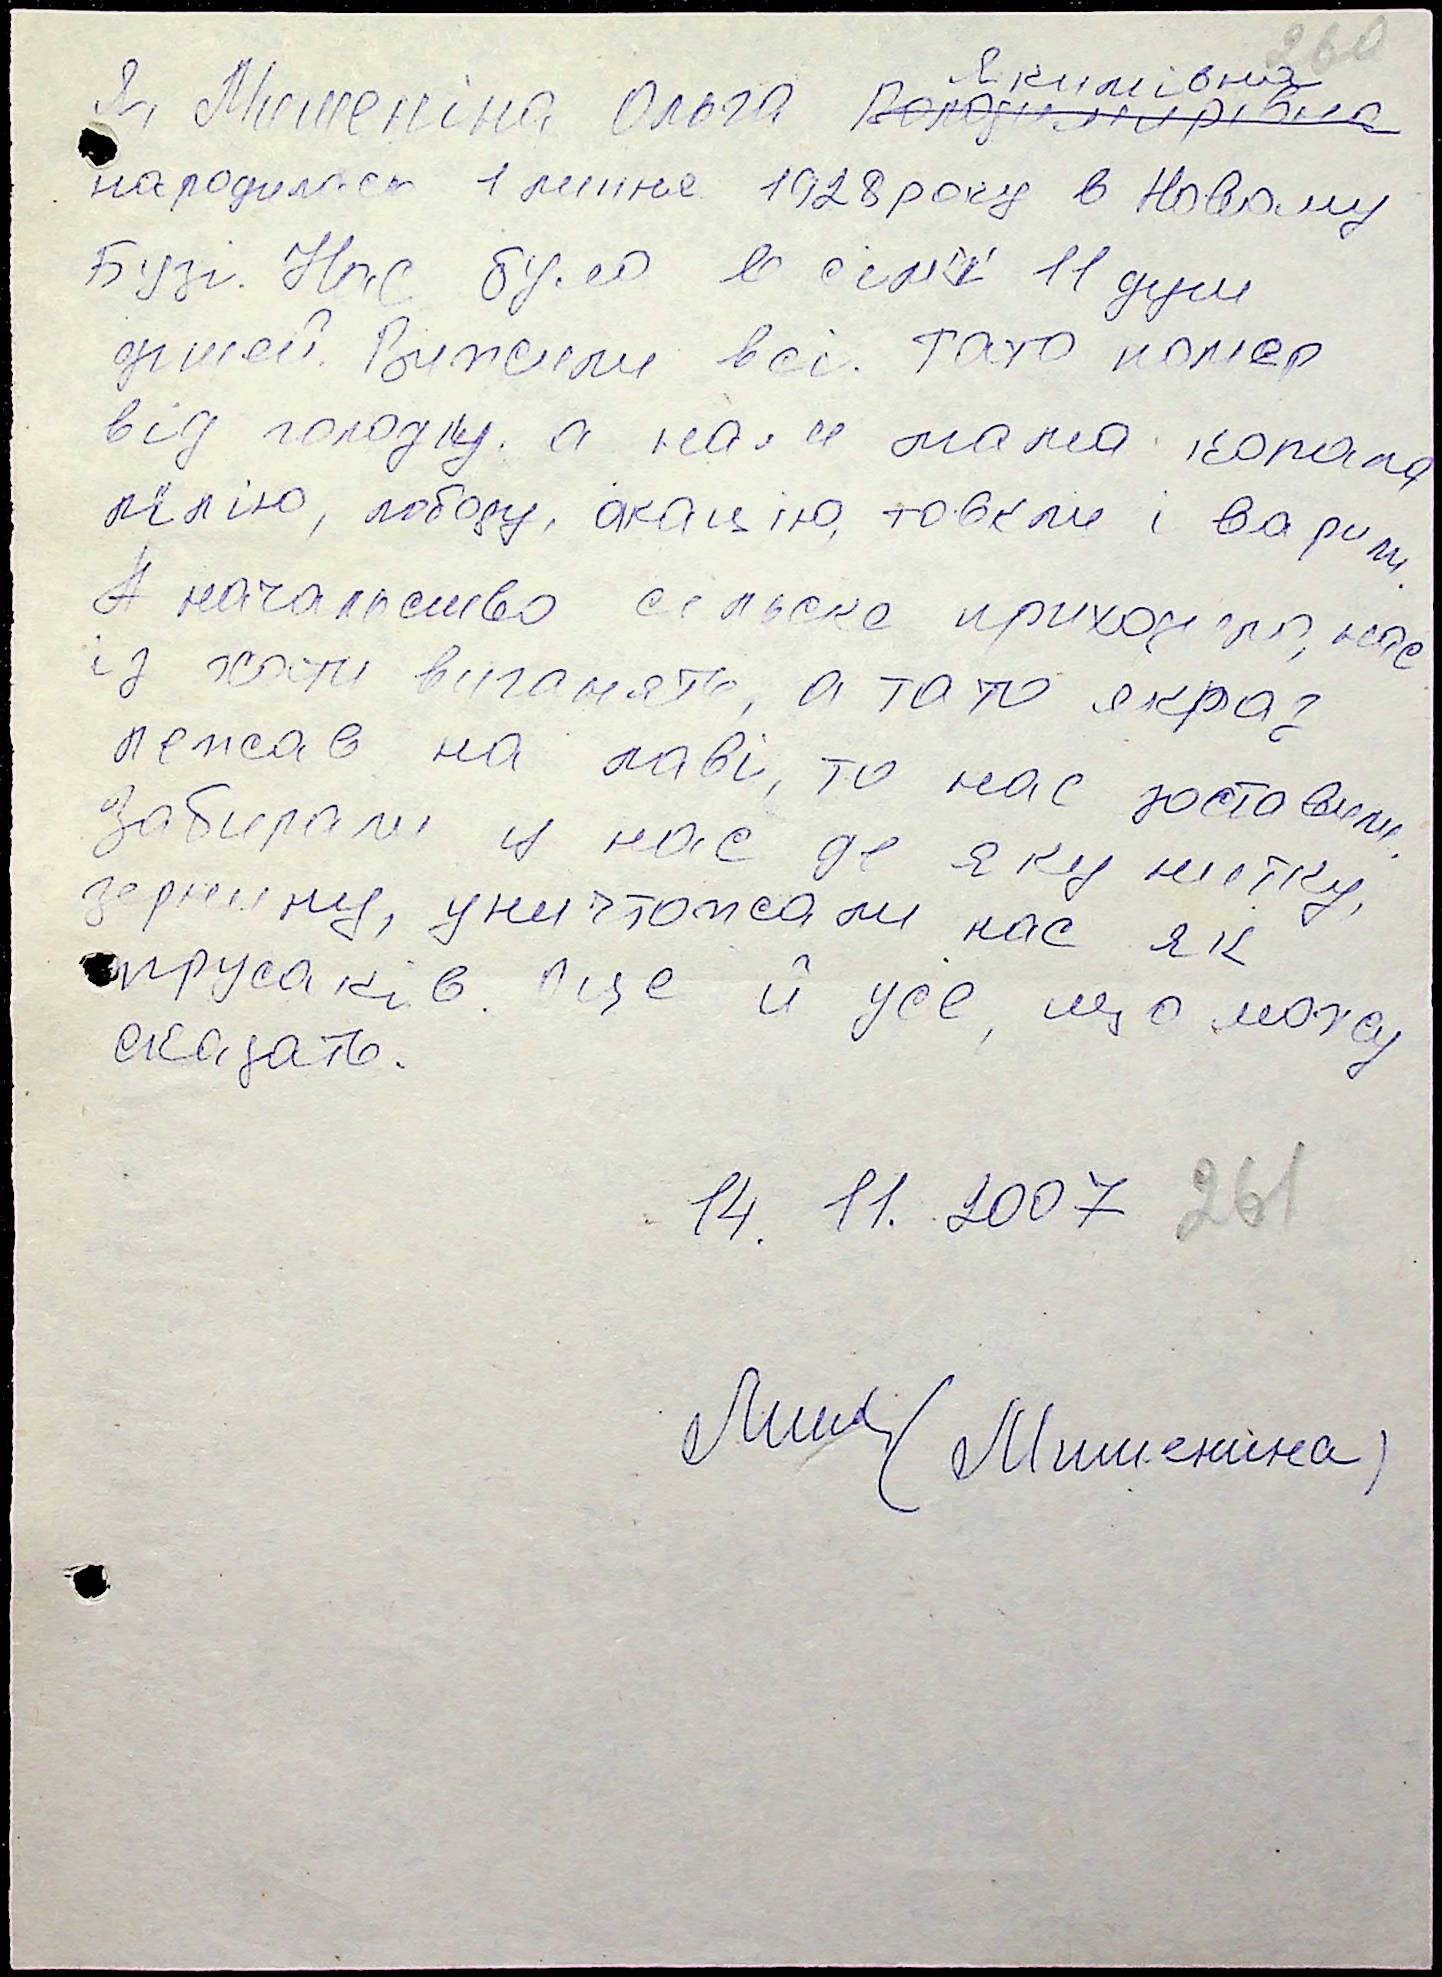 260
Я, Мишеніна Ольга Володимирівна Якимівна
народилась 1 липня 1928 року в Новому
Бузі. Нас було в сім'ї 11 душ
дітей. Вижили всі. Тато помер
від голоду, а мама копала
лілію, лободу, акацію, товкли і варили.
А начальство сельске приходило, нас
із хати виганять, а тато якраз
лежав на лаві, то нас зоставили.
Забирали у нас де яку нитку,
зернину, уничтожали нас як
трусаків. Оце й усе, що можу
сказать.
14. 11. 2007 261
(Мишеніна)